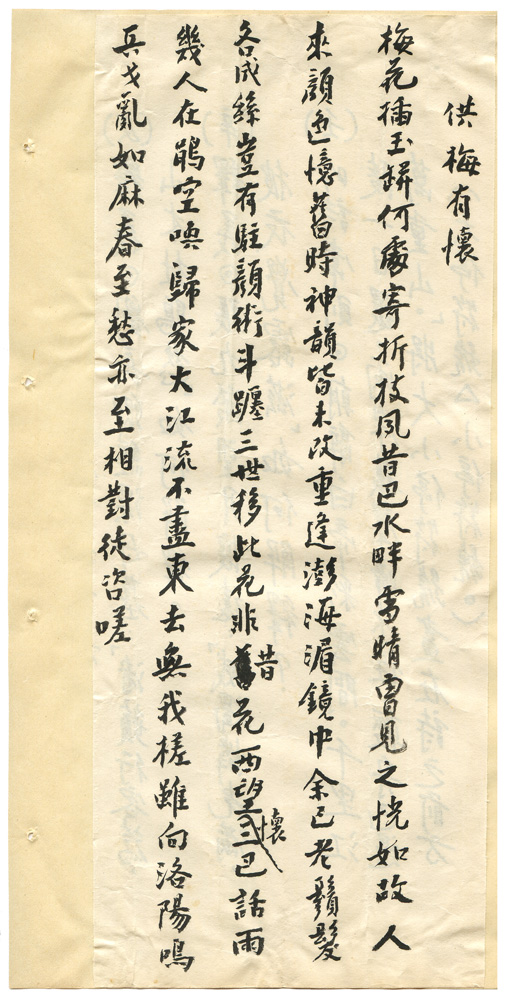 供梅有懷
梅花插玉缾何處寄折枝夙昔巴水畔雪晴曾見之恍如故人
來顏色憶舊時神韻皆未改重逢澎海湄鏡中余已老鬚髮
各成絲豈有駐顏術斗躔三世移此花非昔花西望懷巴話雨
幾人在鵑空喚歸家大江流不盡東去無我槎雖向洛陽鳴
兵戈亂如麻春至愁亦至相對徒咨嗟